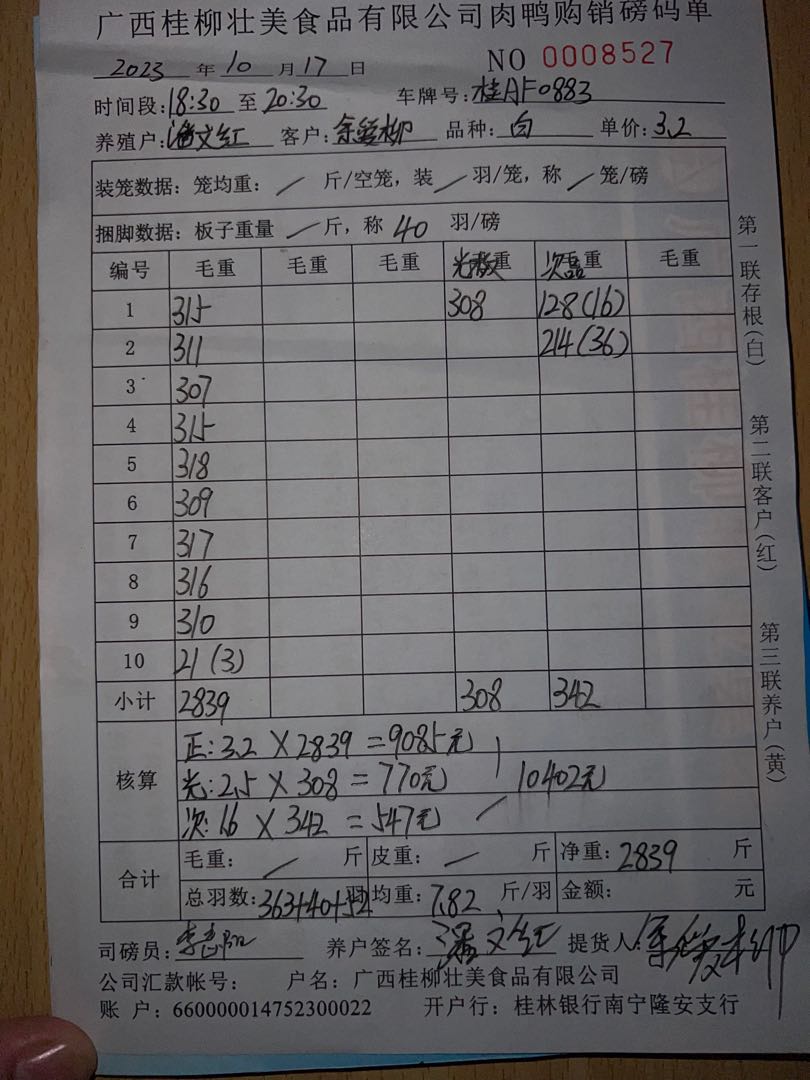 广西桂柳壮美食品有限公司肉鸭购销磅码单
2023 年 10 月 17 日 NO 0008527
时间段: 18:30 至 20:30 车牌号: 桂AF0883
养殖户: 潘文红 客户: 品种: 白 单价: 3.2
装笼数据: 笼均重: / 斤/空笼, 装 / 羽/笼, 称 / 笼/磅
捆脚数据: 板子重量 / 斤, 称 40 羽/磅
编号 毛重 毛重 毛重 光 重 次品重 毛重
1 315 308 128(16)
2 311 214(36)
3 307
4 315
5 318
6 309
7 317
8 316
9 310
10 21(3)
小计 2839 308 342
核算
正: 3.2 × 2839 = 9085元
光: 2.5 × 308 = 770元 10402元
次: 1.6 × 342 = 547元
合计
毛重: / 斤 皮重: / 斤 净重: 2839 斤
总羽数: 363+40+52 羽 均重: 7.82 斤/羽 金额: 元
司磅员: 养户签名: 潘文红 提货人:
公司汇款帐号: 户名: 广西桂柳壮美食品有限公司
账 户: 660000014752300022 开户行: 桂林银行南宁隆安支行
第一联存根(白)
第二联客户(红)
第三联养户(黄)